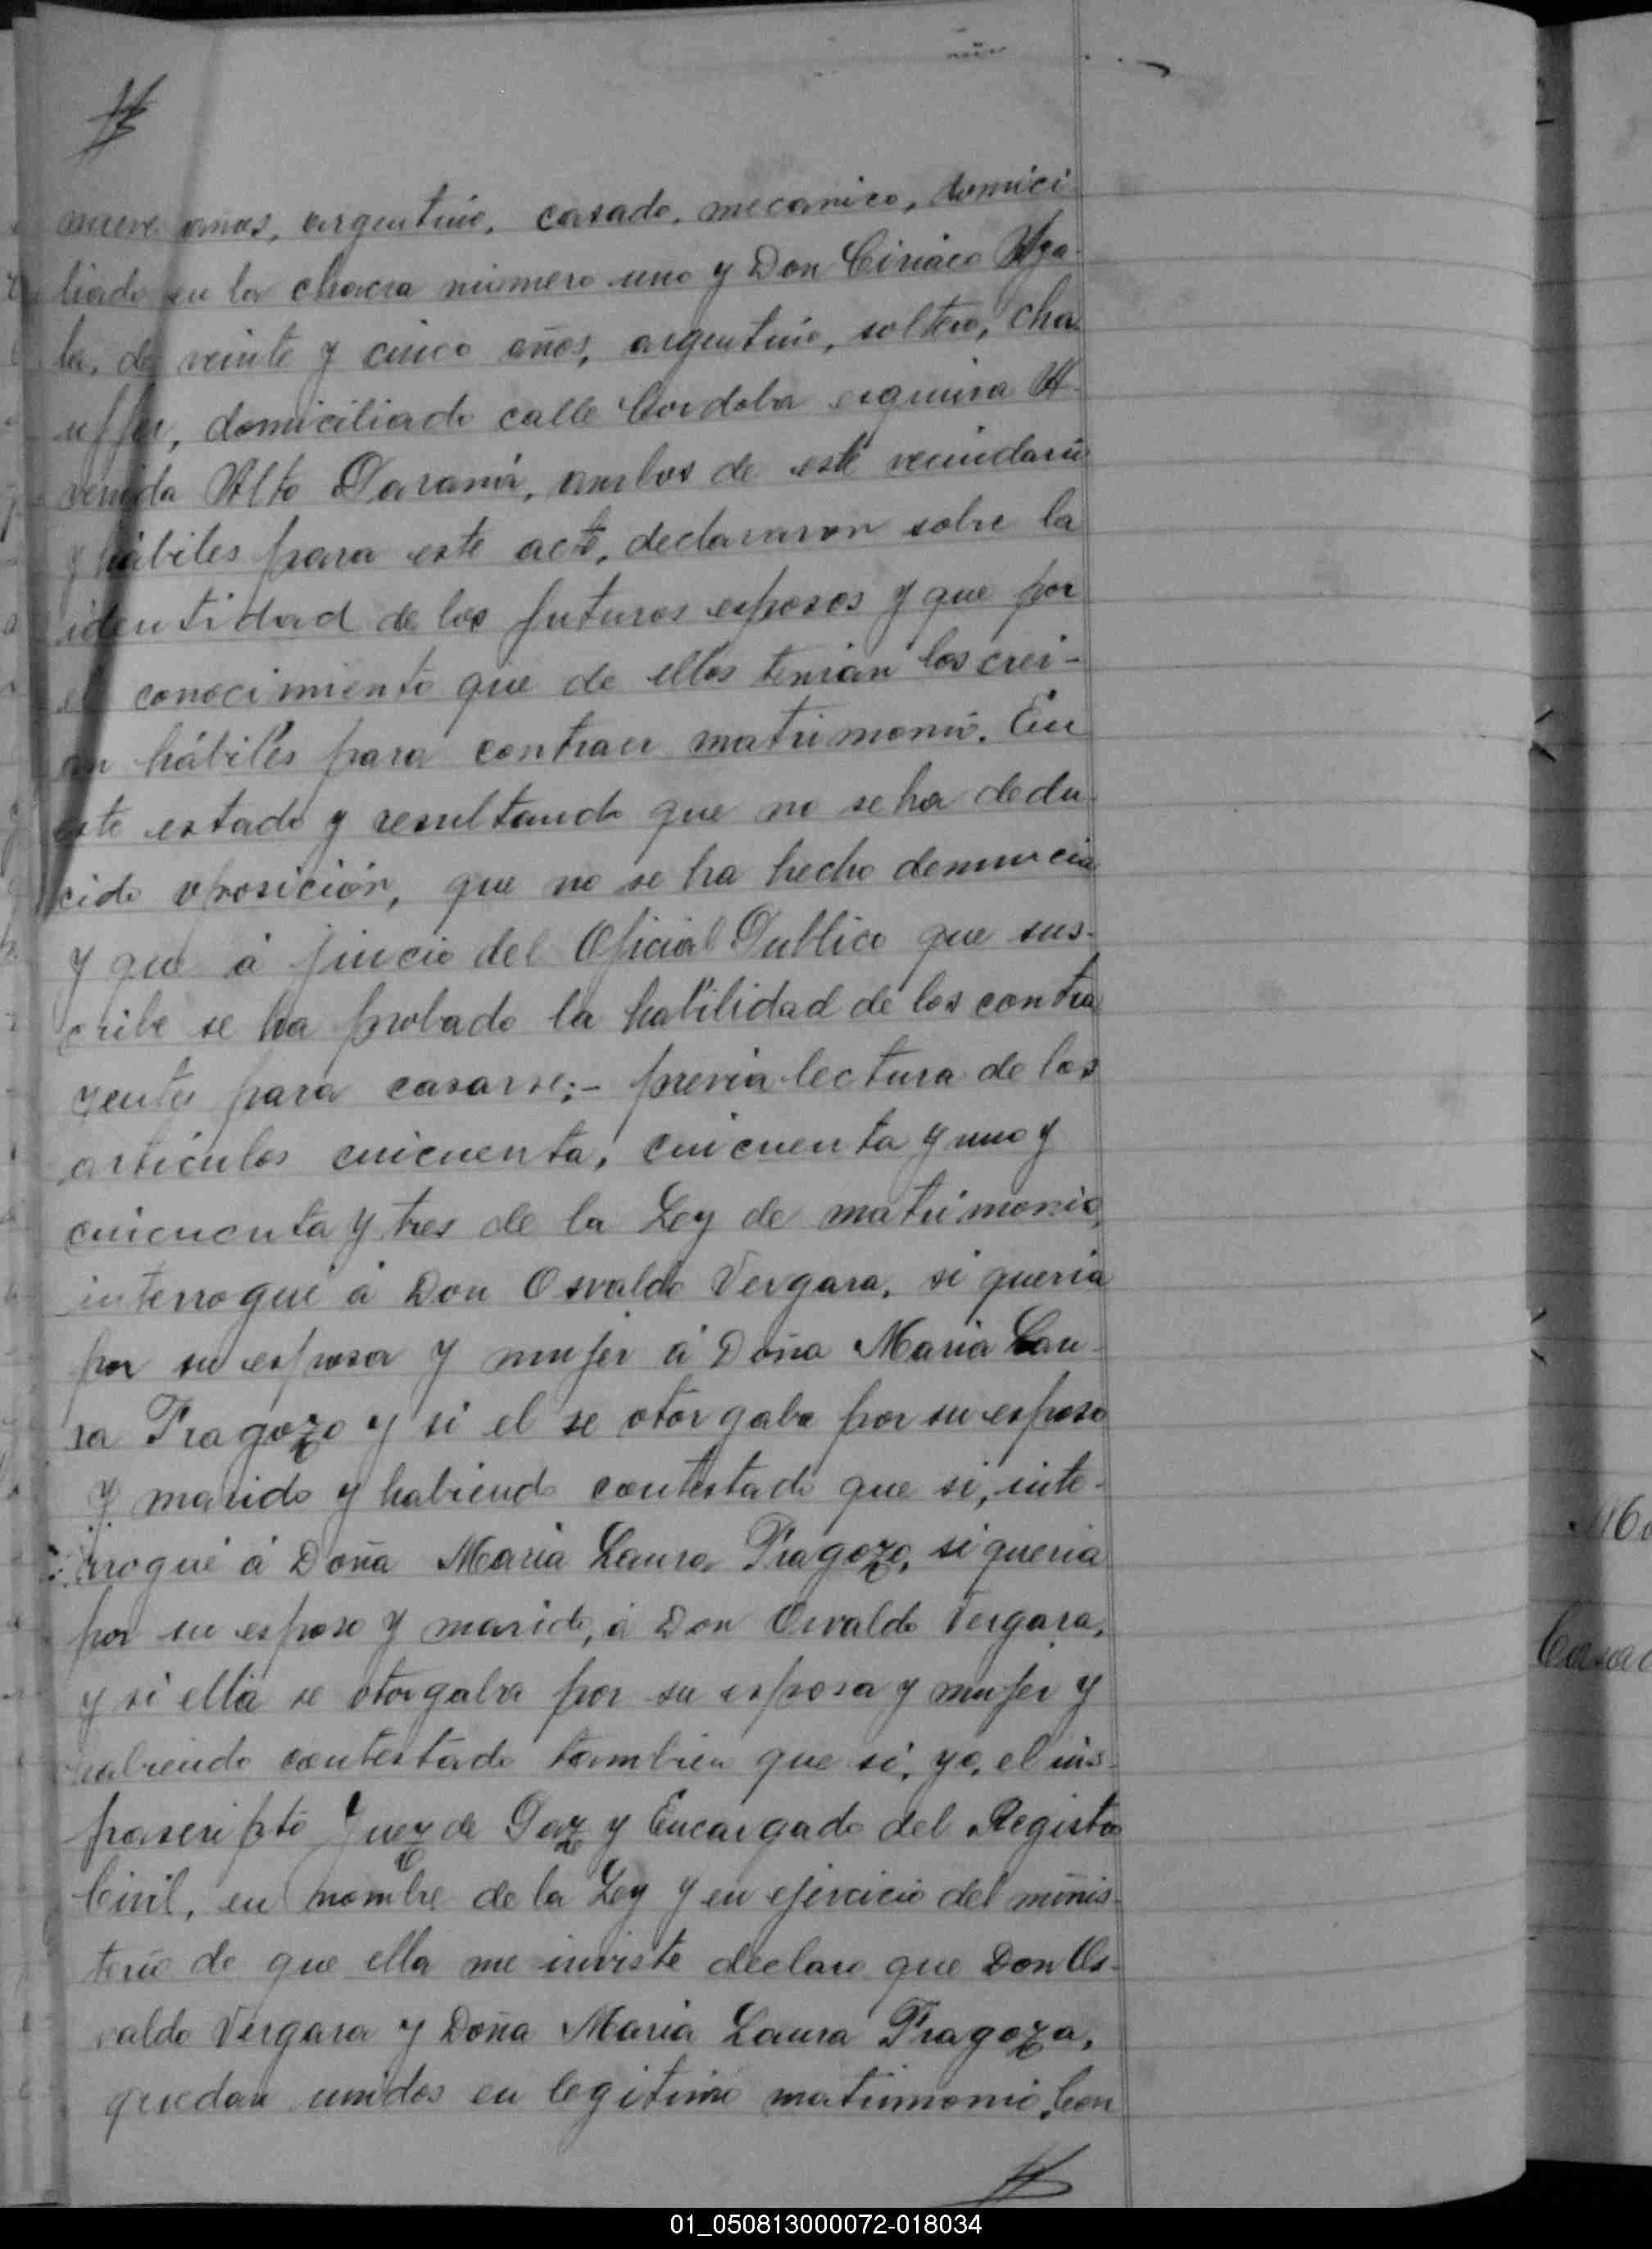 nueve años, argentino, casado, mecanico, domici-
liado en la chacra número uno y Don Ciriaco Aya-
la, de veinte y cinco años, argentino, soltero, cha-
uffer, domiciliado calle Cordoba esquina A-
venida Alto Paraná, ambos de este vecindario
y hábiles para este acto, declararon sobre la
identidad de los futuros esposos y que por
el conocimiento que de ellos tenian los crei-
an hábiles para contraer matrimonio. En
este estado y resultando que no se ha dedu-
cido oposición, que no se ha hecho denuncia
y que á juicio del Oficial Publico que sus-
cribe se ha probado la habilidad de los contra
yentes para casarse;- previa lectura de los
artículos cincuenta, cincuenta y uno y
cincuenta y tres de la Ley de matrimonio,
interrogué á Don Osvaldo Vergara, si queria
por su esposa y mujer á Doña Maria Lau-
ra Fragozo y si el se otorgaba por su esposo
y marido y habiendo contestado que si, inte-
rrogué á Doña Maria Laura Fragozo, si queria
por su esposo y marido, á Don Osvaldo Vergara,
y si ella se otorgaba por su esposa y mujer y
habiendo contestado tambien que si, yo, el ins-
frascripto Juez de Paz y Encargado del Registro
Civil, en nombre de la Ley y en ejercicio del minis-
terio de que ella me inviste declaro que Don Os-
valdo Vergara y Doña Maria Laura Fragoza,
quedan unidos en legitimo matrimonio, Con
01_050813000072-018034